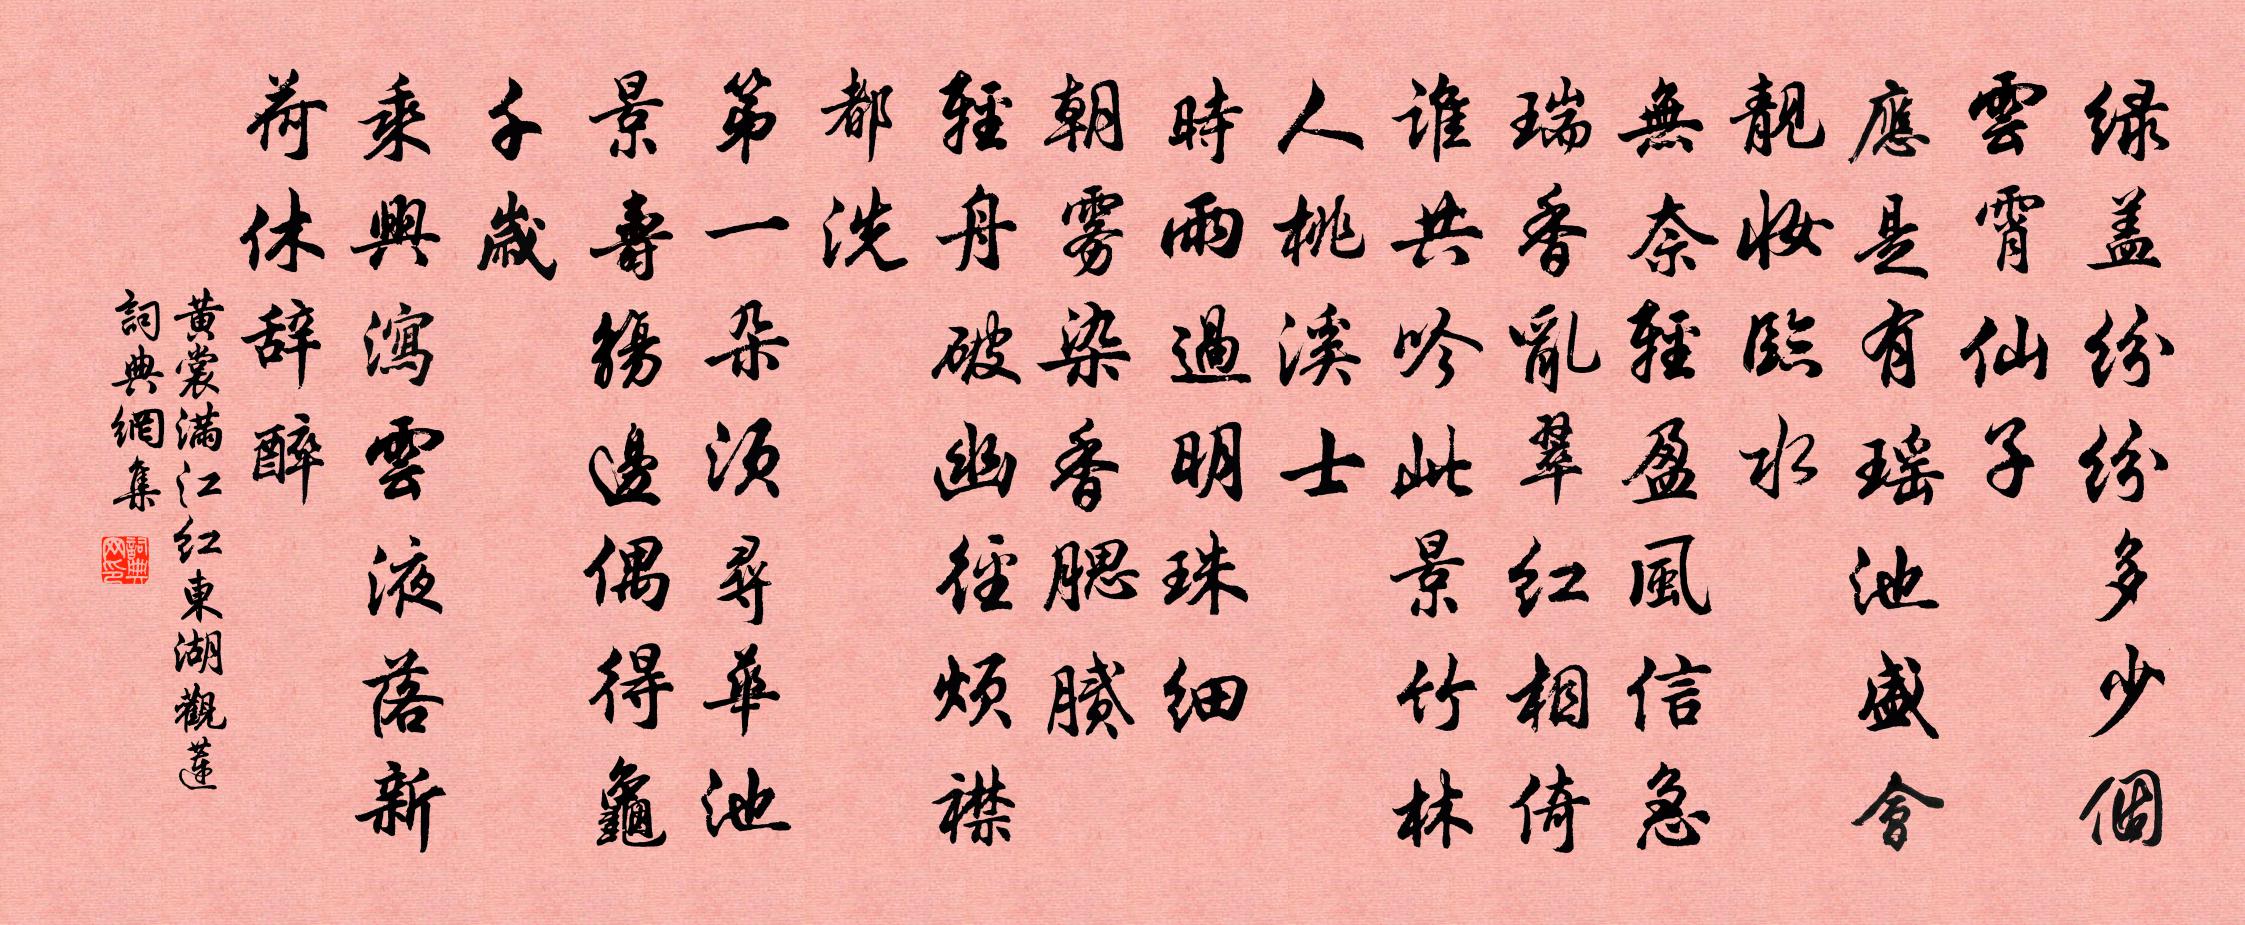 緑盖紛紛多少個
雲霄仙子
應是有瑶池盛會
靚妝臨水
無奈輕盈風信急
瑞香亂翠紅相倚
誰共吟此景竹林
人桃溪士
時雨過明珠細
朝雾染香腮膩
輕舟破幽徑煩襟
都洗
第一朵须尋華池
景壽觴邊偶得龜
千歲
乘興瀉雲液落新
荷休辞醉
黄裳满江红東湖觀蓮
詞典網集
詞典网印